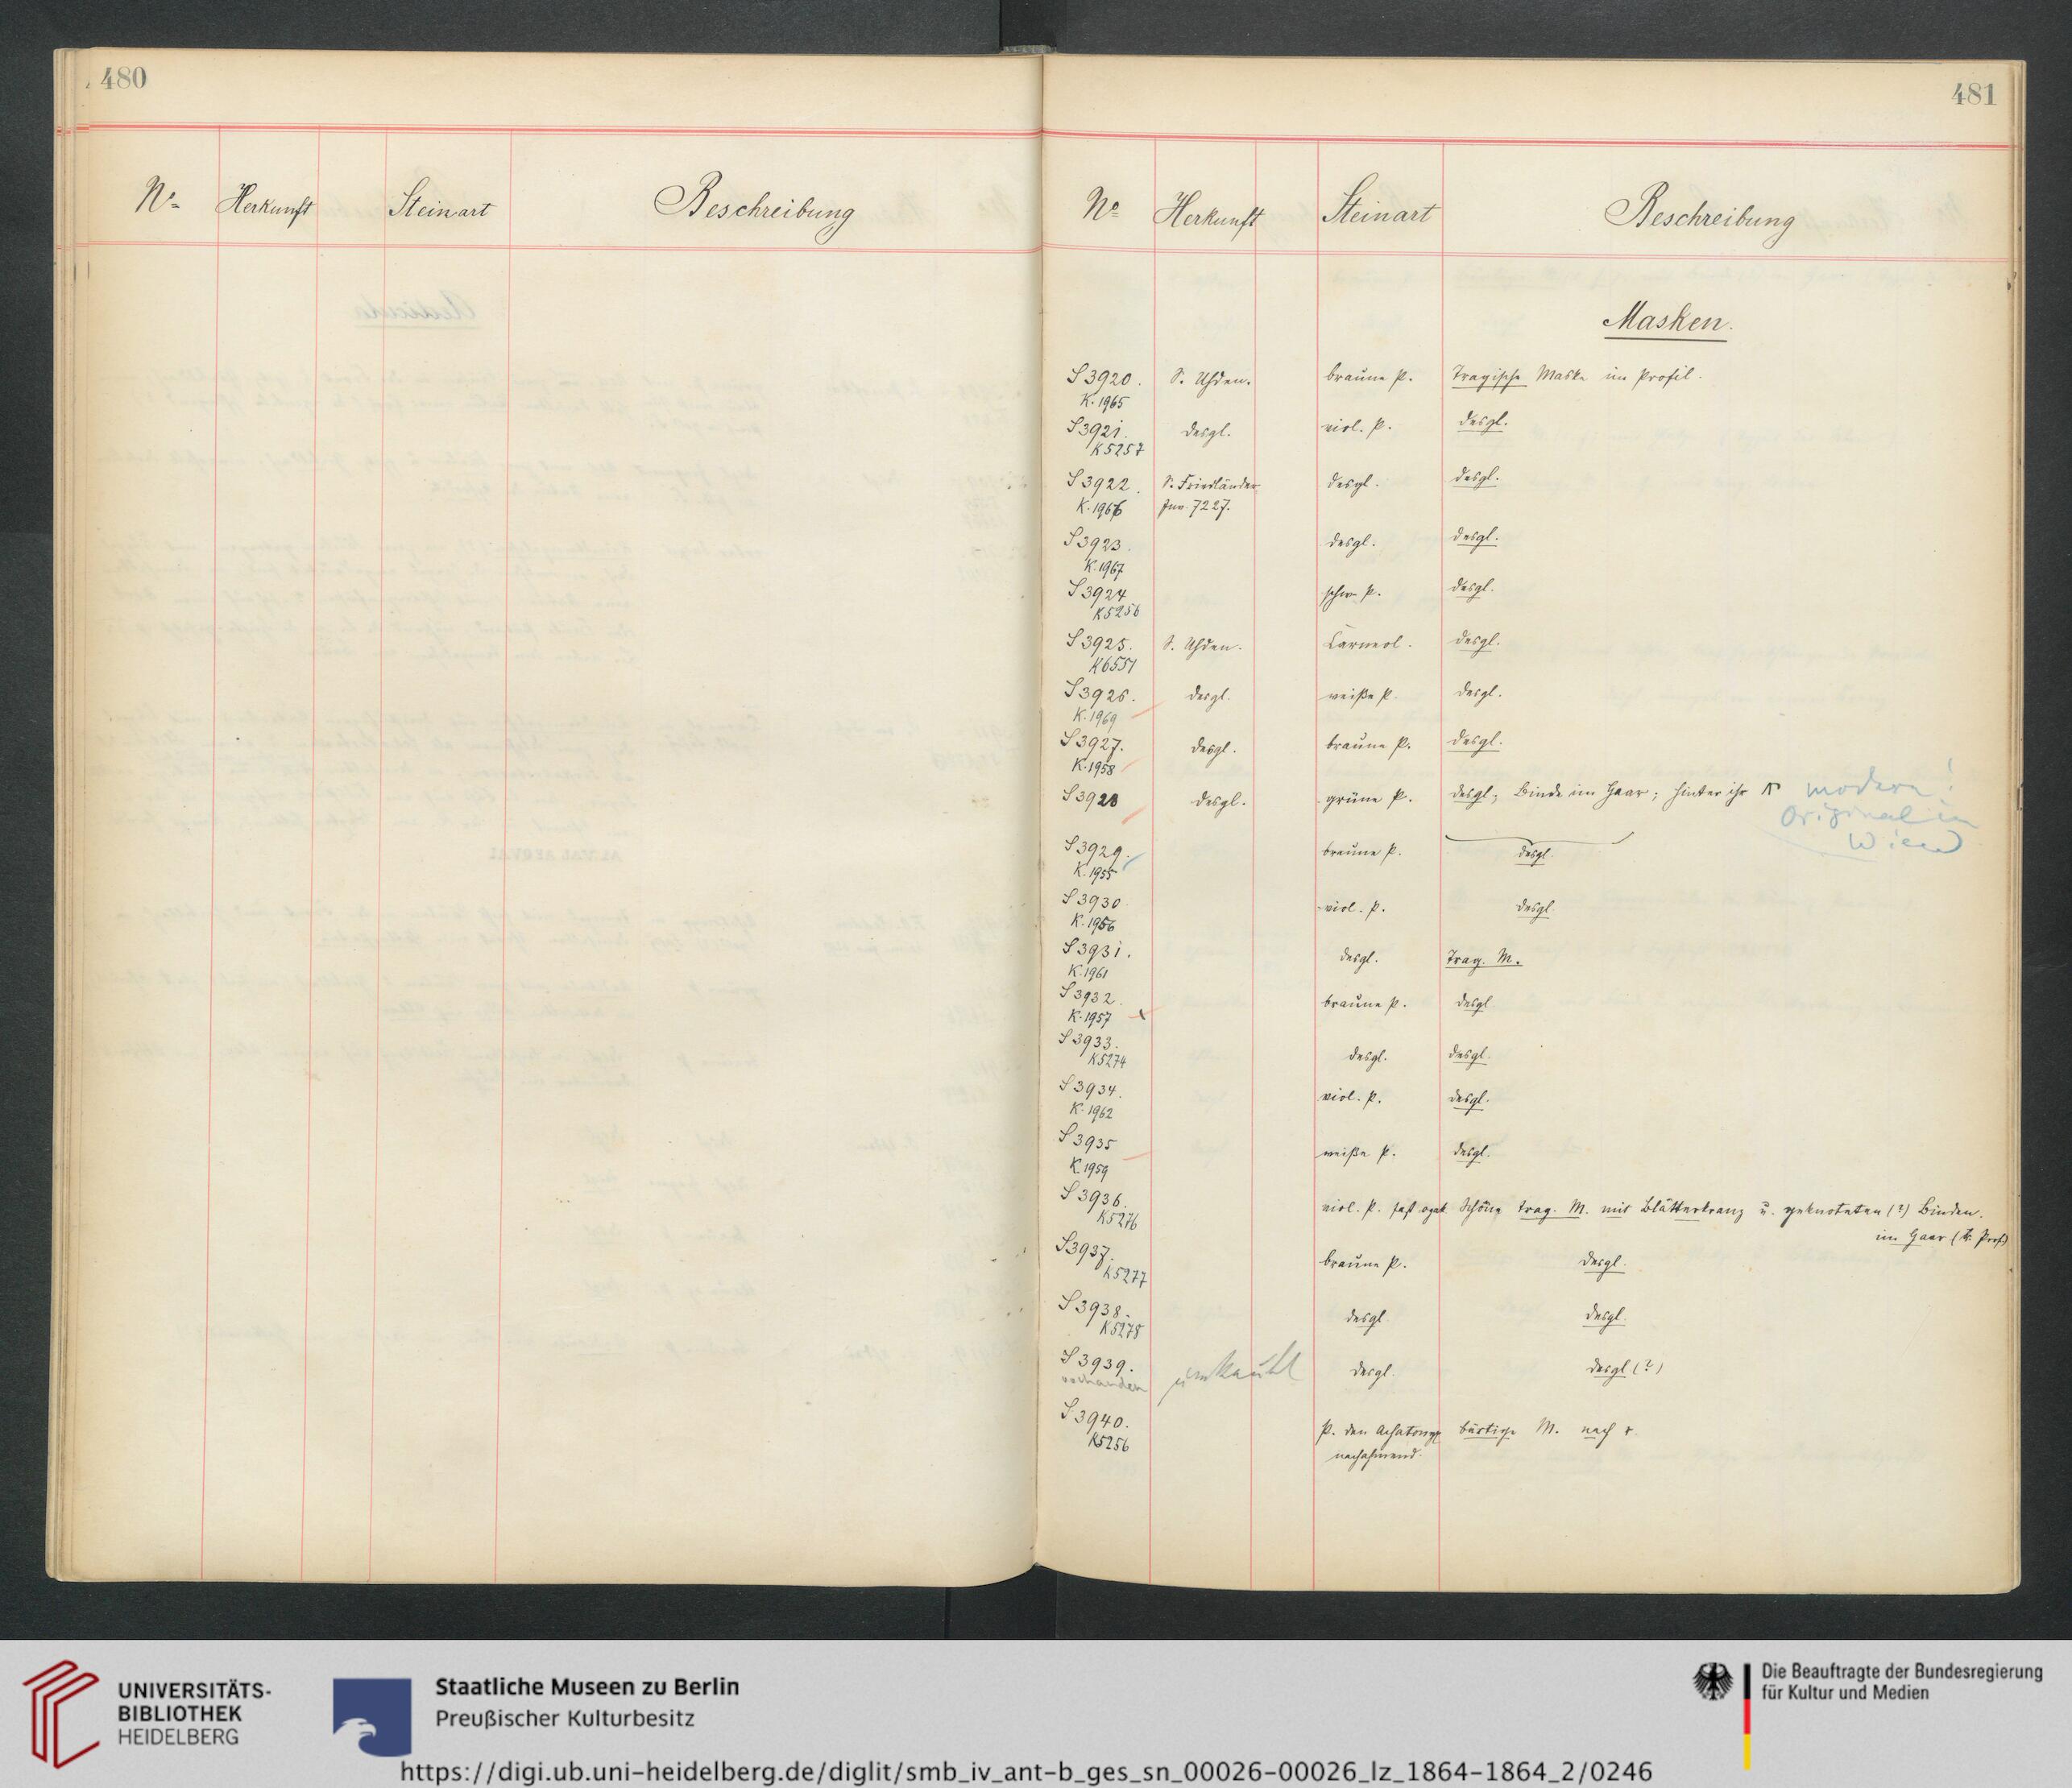 480
Nº
Herkunft
Steinart
Beschreibung
481
Nº
Herkunft
Steinart
Beschreibung
Masken.
S 3920. S. Uhden. braune P. Tragische Maske im Profil.
K. 1965
S 3921. desgl. viol. P. desgl.
K 5257
S 3922. S. Friedländer desgl. desgl.
K. 1966 Inv. 7227.
S 3923. desgl. desgl.
K. 1967
S 3924 schw P. desgl.
K 5256
S 3925. S. Uhden. Carneol. desgl.
K 6551
S 3926. desgl. weiße P. desgl.
K. 1969
S 3927. desgl. braune P. desgl.
K. 1958
S 3928 desgl. grüne P. desgl; Binde im Haar; hinter ihr modern!
Original in
Wien
S 3929. braune P. desgl.
K. 1955
S 3930 viol. P. desgl.
K. 1956
S 3931. desgl. Trag. M.
K. 1961
S 3932. braune P. desgl
K. 1957
S 3933. desgl. desgl.
K 5274
S 3934. viol. P. desgl.
K. 1962
S 3935 weiße P. desgl.
K. 1959
S 3936. viol. P. fast opak Schöne trag. M. mit Blätterkranz u. geknoteten (?) Binden.
K 5276 im Haar (Prof)
S 3937. braune P. desgl.
K 5277
S 3938. desgl desgl.
K 5278
S 3939. desgl. desgl (?)
vorhanden
S 3940. P. den Achatonyx bärtige M. nach r.
K 5256 nachahmend.
UNIVERSITÄTS-
BIBLIOTHEK
HEIDELBERG
Staatliche Museen zu Berlin
Preußischer Kulturbesitz
Die Beauftragte der Bundesregierung
für Kultur und Medien
https://digi.ub.uni-heidelberg.de/diglit/smb_iv_ant-b_ges_sn_00026-00026_lz_1864-1864_2/0246